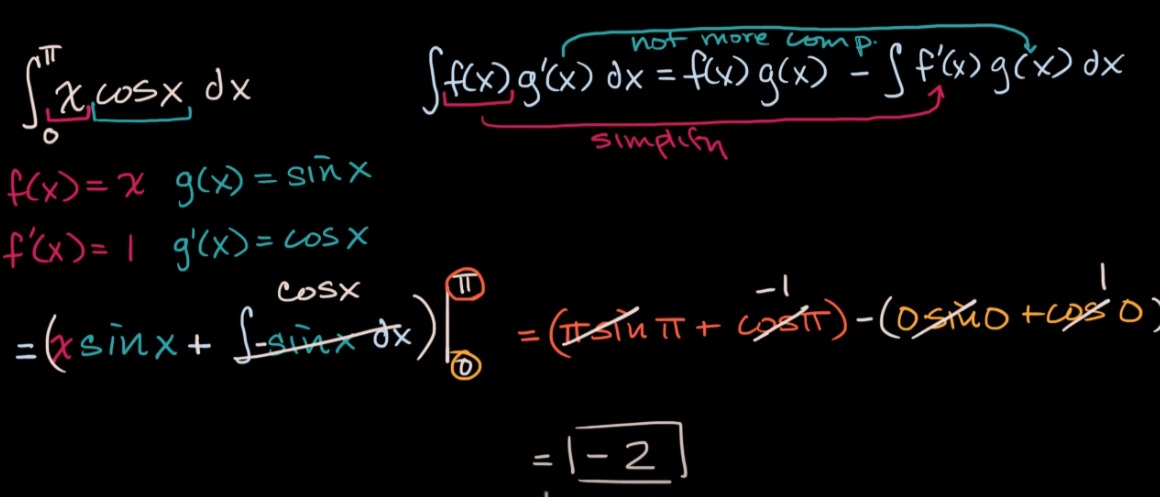 ∫₀^π x cosx dx
not more comp.
∫f(x) g'(x) dx = f(x) g(x) - ∫ f'(x) g(x) dx
simplify
f(x) = x g(x) = sin x
f'(x) = 1 g'(x) = cos x
cosx
= (x sin x + ∫-sinx dx)|₀^π = (π sin π + cos π) - (0 sin 0 + cos 0)
-1 1
= -2